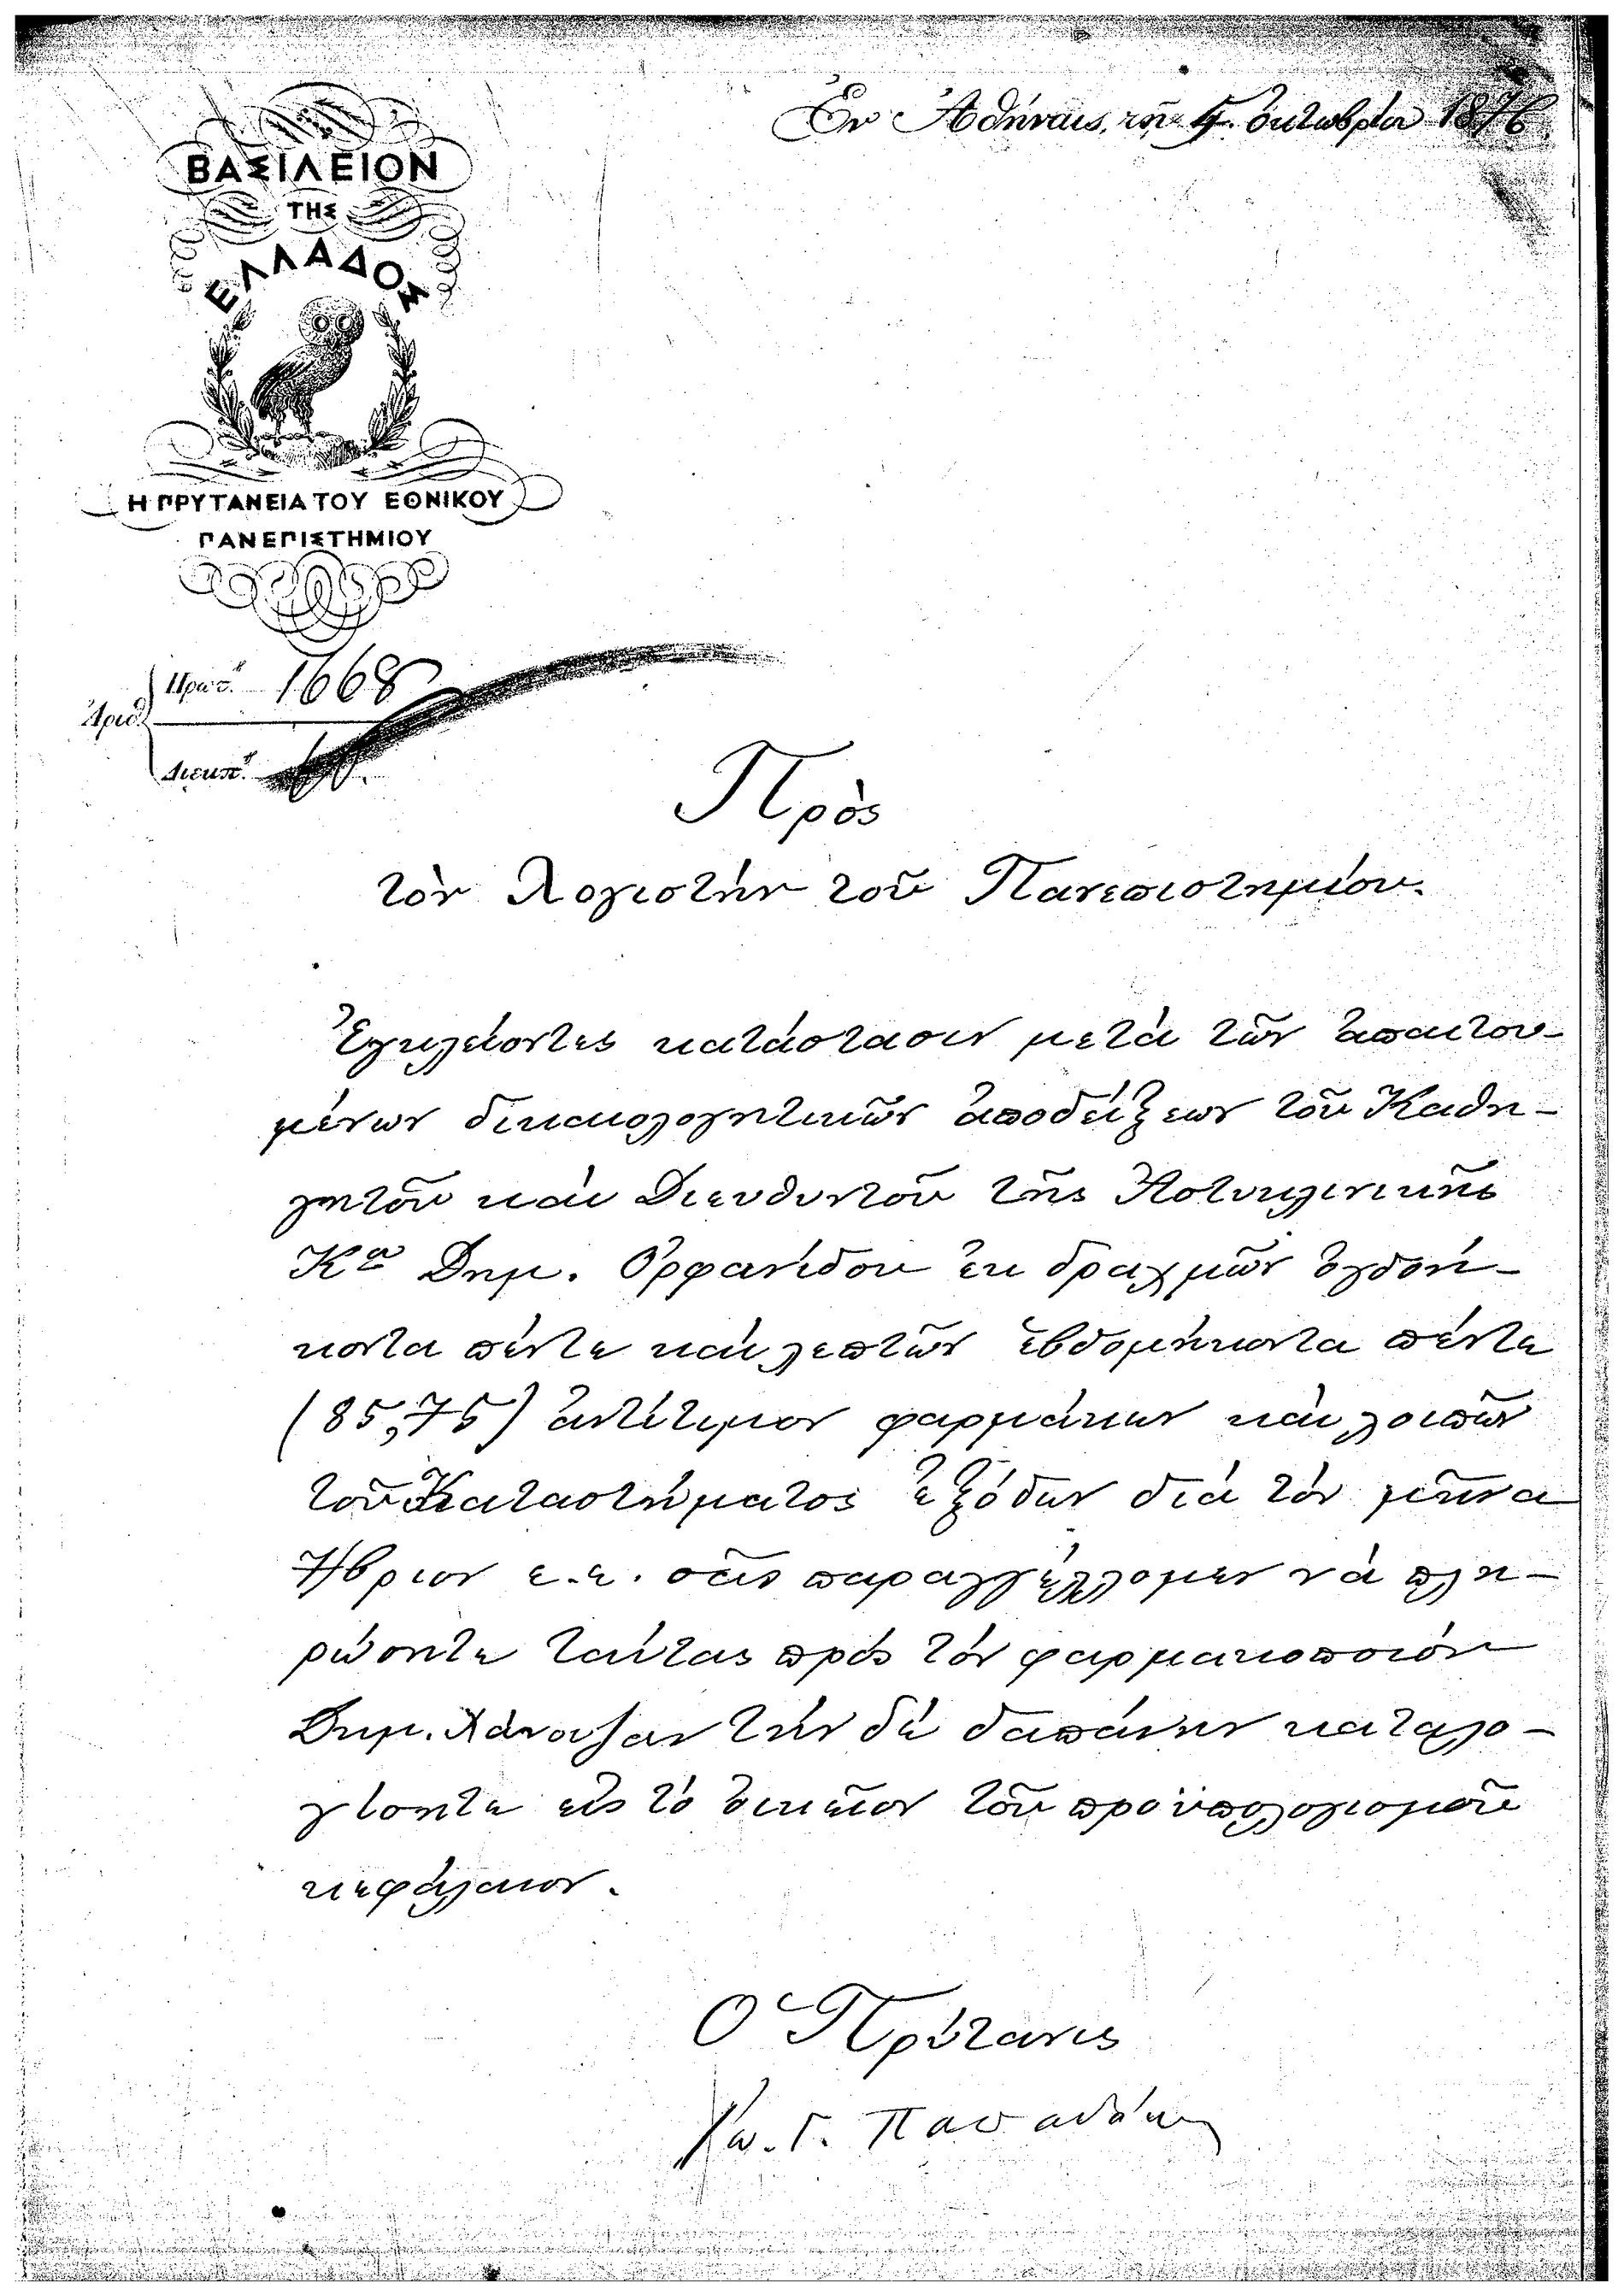 Ἐν Ἀθήναις, τῇ 4 Ὀκτωβρίου 1876
ΒΑΣΙΛΕΙΟΝ
ΤΗΣ
ΕΛΛΑΔΟΣ
Η ΠΡΥΤΑΝΕΙΑ ΤΟΥ ΕΘΝΙΚΟΥ
ΠΑΝΕΠΙΣΤΗΜΙΟΥ
Πρωτ. 1668
Ἀριθ.
Διεκπ.
Πρὸς
τὸν Λογιστὴν τοῦ Πανεπιστημίου.
Ἐγκλείοντες κατάστασιν μετὰ τῶν ἀπαιτου-
μένων δικαιολογητικῶν ἀποδείξεων τοῦ Καθη-
γητοῦ καὶ Διευθυντοῦ τῆς Ἀστυκλινικῆς
Κου Δημ. Ὀρφανίδου ἐκ δραχμῶν ὀγδοή-
κοντα πέντε καὶ λεπτῶν ἑβδομήκοντα πέντε
(85,75) ἀντίτιμον φαρμάκων καὶ λοιπῶν
τοῦ Καταστήματος ἐξόδων διὰ τὸν μῆνα
7/βριον ἐ.ἔ. σᾶς παραγγέλλομεν νὰ πλη-
ρώσητε ταύτας πρὸς τὸν φαρμακοποιόν
Δημ. τὴν δὲ δαπάνην καταλο-
γίσητε εἰς τὸ οἰκεῖον τοῦ προϋπολογισμοῦ
κεφάλαιον.
Ὁ Πρύτανις
Κω. Γ. Παπαδάκης